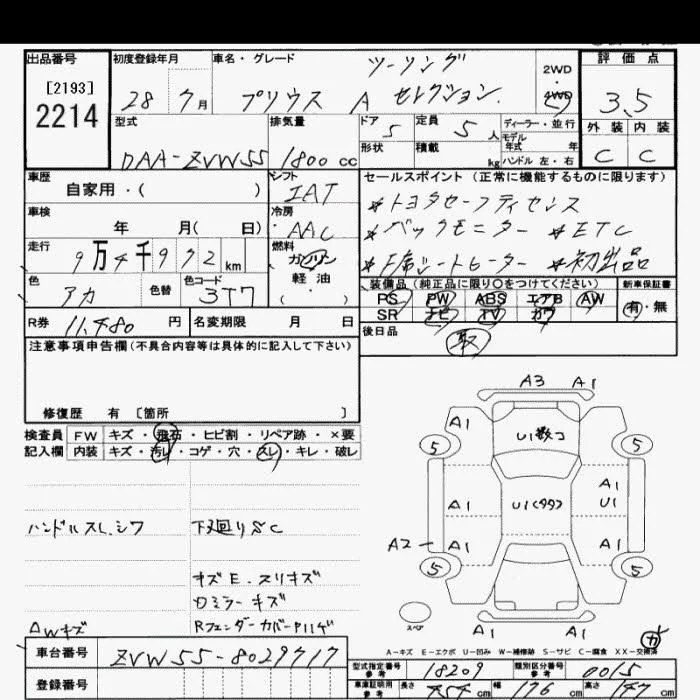 出品番号 初度登録年月 車名・グレード 評価点
[2193]
2214
28 7月 プリウス A ツーリング セレクション
2WD
・
4WD
3.5
外装 内装
C C
型式 排気量 ドア 定員 ディーラー・並行
DAA-ZVW55 1800cc 5 5人
モデル
年式 年
形状 積載 kg ハンドル 左・右
車歴 シフト セールスポイント (正常に機能するものに限ります)
自家用・( ) IAT
車検 冷房
年 月( 日) AAC
*トヨタセーフティセンス
*バックモニター *ETC
*F席シートヒーター *初出品
走行 燃料
9万4千972km ガソリン
軽油
( )
色 色替 色コード
アカ 3T7
装備品(純正品に限り〇をつけてください) 新車保証書
PS PW ABS エアB AW 有・無
SR ナビ TV カワ
R券 11,480円 名変期限 月 日
後日品
取
注意事項申告欄(不具合内容等は具体的に記入して下さい)
修復歴 有 [箇所 ]
検査員 FW キズ・飛石・ヒビ割・リペア跡・×要
記入欄 内装 キズ・汚レ・コゲ・穴・スレ・キレ・破レ
ハンドルスレ、シワ 下廻りSC
キズE・スリキズ
ロミラーキズ
AWキズ Rフェンダーカバー
A3 A1
A1 U1数コ A1
5 5
A1 A1
U1
A2 A1 A1
5 5
スペア A1 A1
A-キズ E-エクボ U-凹み W-補修跡 S-サビ C-腐食 XX-交換済
車台番号 ZVW55-8029717
登録番号
型式指定番号 参考 18209 類別区分番号 参考 0015
車庫証明用 参考 長さ 454cm 幅 176cm 高さ 147cm